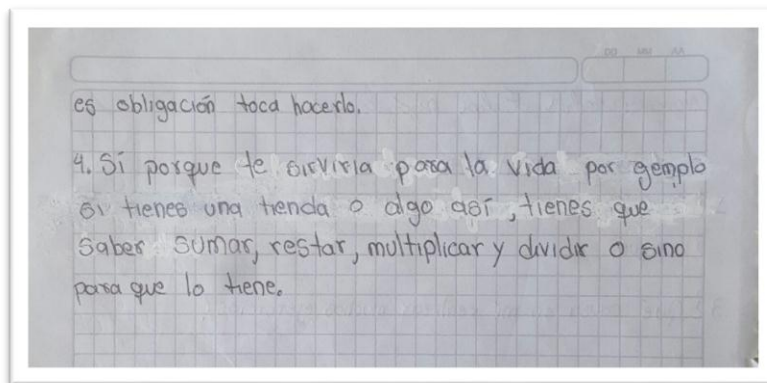 DD MM AA
es obligación toca hacerlo.
4. Sí porque te serviría para la vida por gemplo
si tienes una tienda o algo así, tienes que
saber sumar, restar, multiplicar y dividir o sino
para que lo tiene.